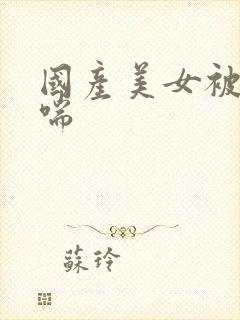 國產美女被
喘
蘇玲